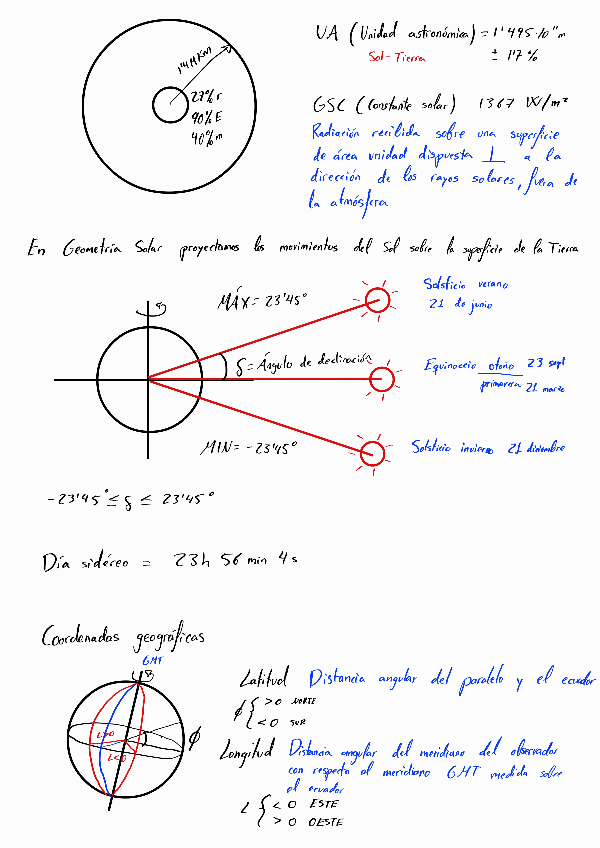 UA (Unidad astronómica) = 1'495·10¹¹ m
Sol - Tierra ± 1'7 %
27% r
90% E
40% m
GSC (Constante solar) 1367 W/m²
Radiación recibida sobre una superficie
de área unidad dispuesta ⊥ a la
dirección de los rayos solares, fuera de
la atmósfera
En Geometría Solar proyectamos los movimientos del Sol sobre la superficie de la Tierra
MÁX = 23'45°
Solsticio verano
21 de junio
δ = Ángulo de declinación
Equinoccio otoño 23 sept
primavera 21 marzo
MIN = -23'45°
Solsticio invierno 21 diciembre
-23'45° ≤ δ ≤ 23'45°
Día sidéreo = 23h 56 min 4s
Coordenadas geográficas
GMT
L>0
L<0
ϕ
Latitud Distancia angular del paralelo y el ecuador
ϕ { > 0 NORTE
< 0 SUR
Longitud Distancia angular del meridiano del observador
con respecto al meridiano GMT medida sobre
el ecuador
L { < 0 ESTE
> 0 OESTE